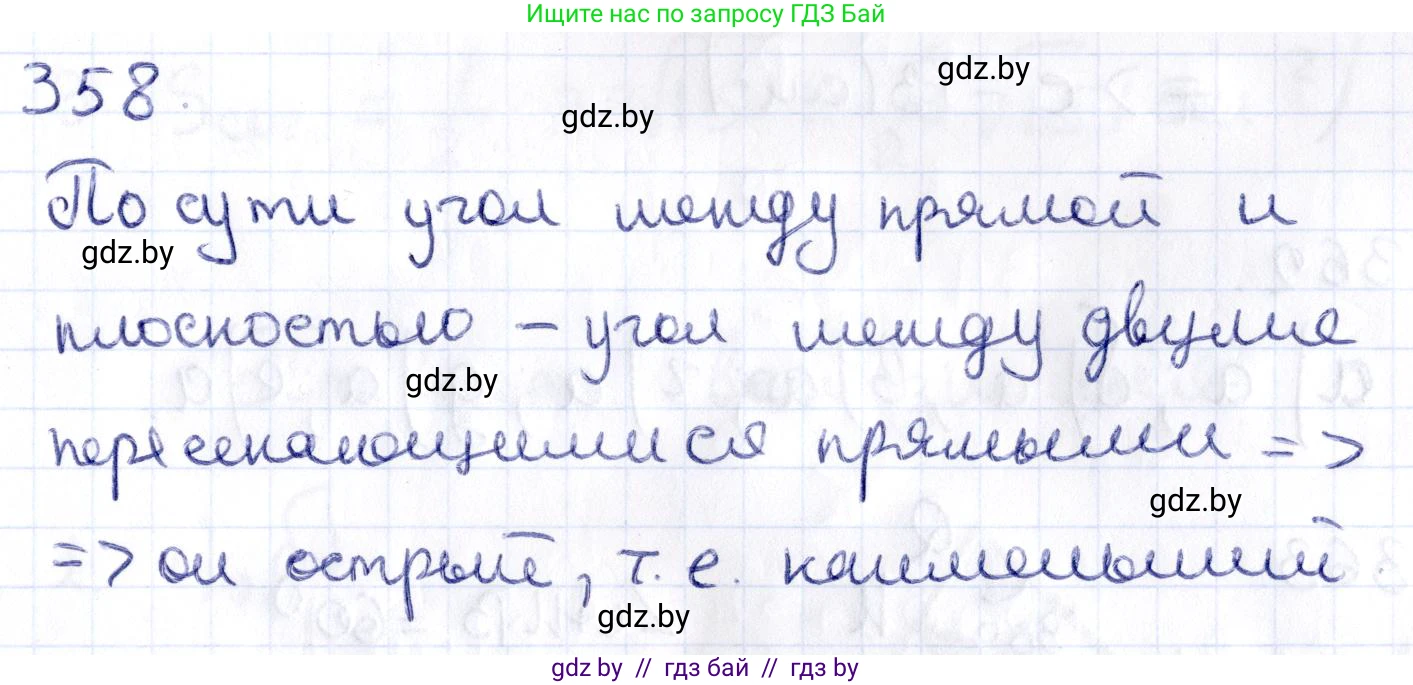 Ищите нас по запросу ГДЗ Бай
358.
gdz.by
gdz.by
По сути угол между прямой и
gdz.by
плоскостью – угол между двумя
gdz.by
пересекающимися прямыми =>
gdz.by
=> он острый, т.е. наименьший
gdz.by
gdz by // гдз бай // гдз by